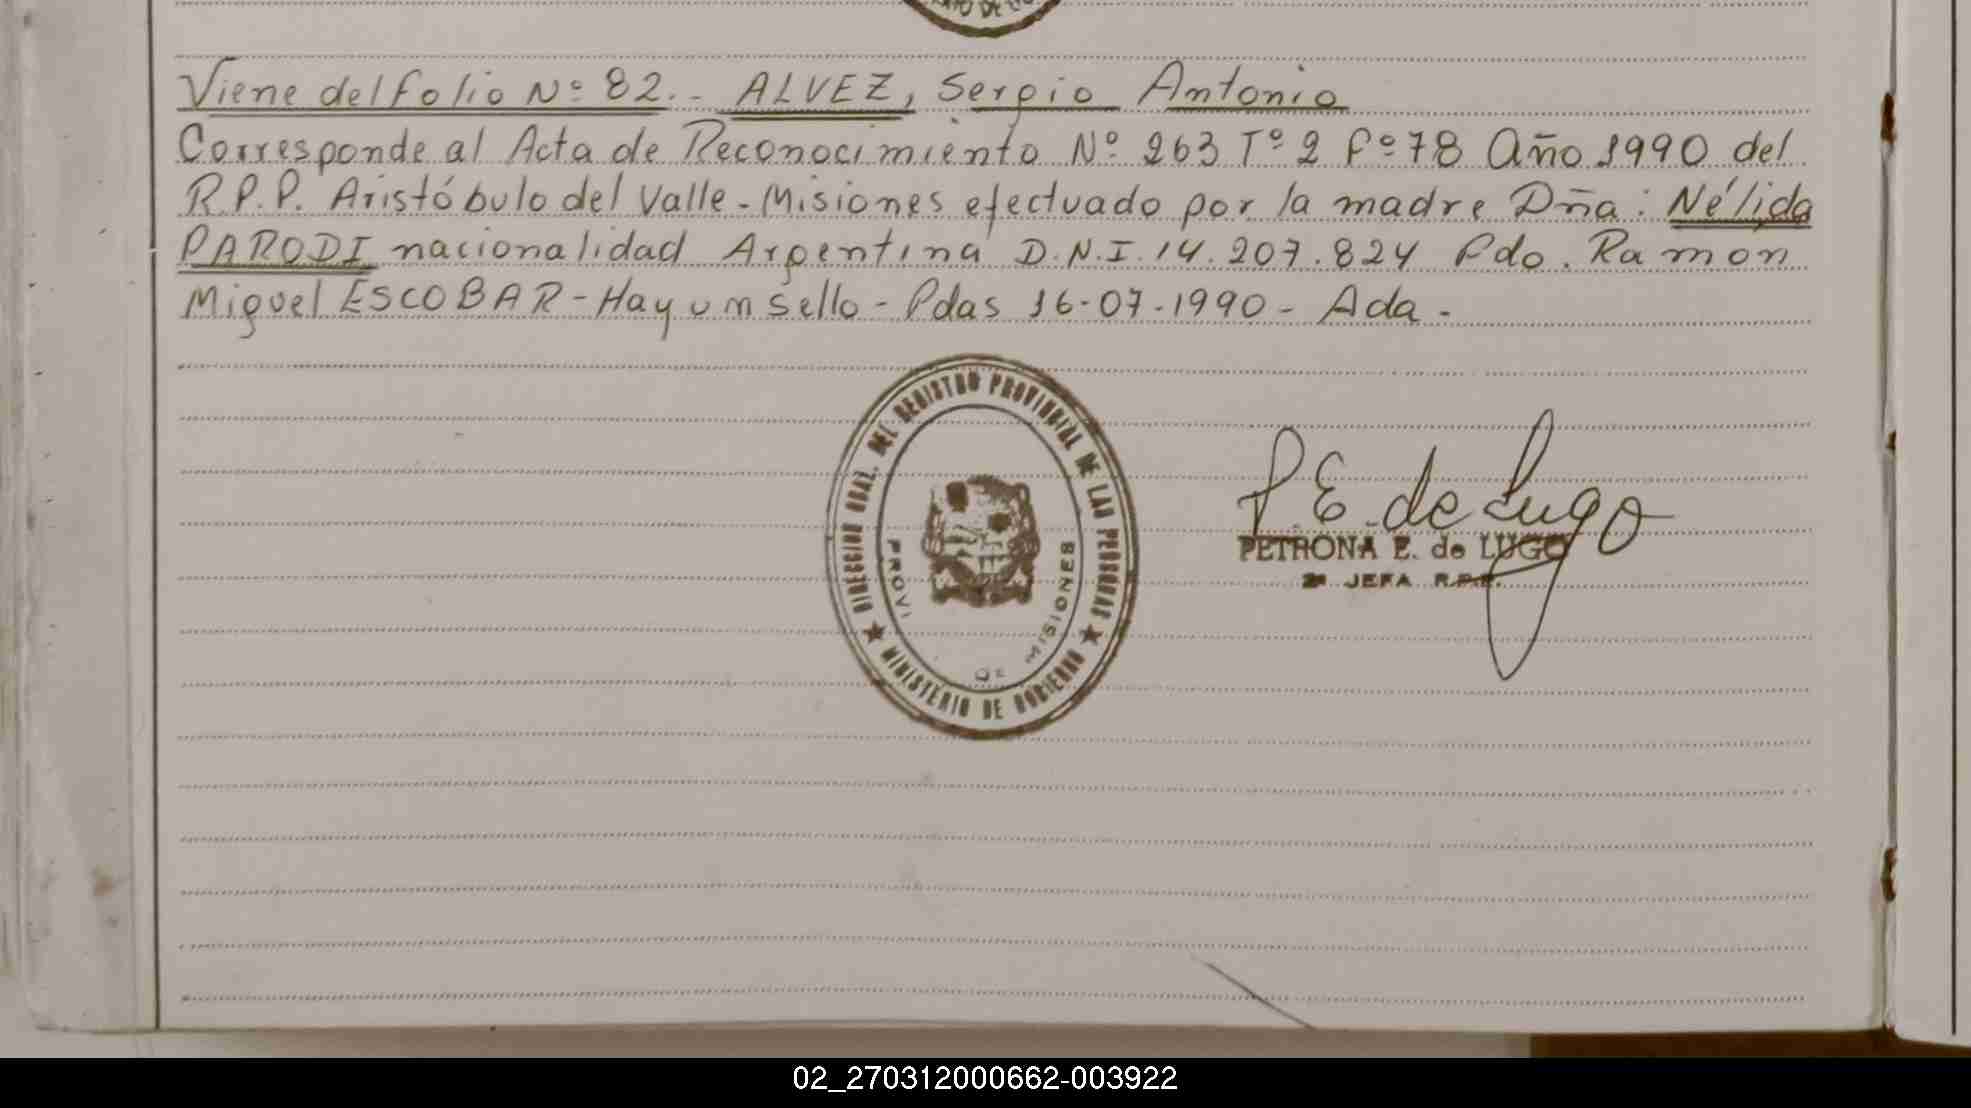 Viene del folio Nº 82.- ALVEZ, Sergio Antonio
Corresponde al Acta de Reconocimiento Nº 263 Tº 2 Fº 78 Año 1990 del
R.P.P. Aristóbulo del Valle - Misiones efectuado por la madre Dña: Nélida
PARODI nacionalidad Argentina D.N.I. 14.207.824 Fdo. Ramón
Miguel ESCOBAR - Hay un sello - Pdas 16-07-1990 - Ada -
DIRECCION GRAL. DEL REGISTRO PROVINCIAL DE LAS PERSONAS
PROVI DE MISIONES
MINISTERIO DE GOBIERNO
P. E. de Lugo
PETRONA E. de LUGO
2ª JEFA R.P.P.
02_270312000662-003922